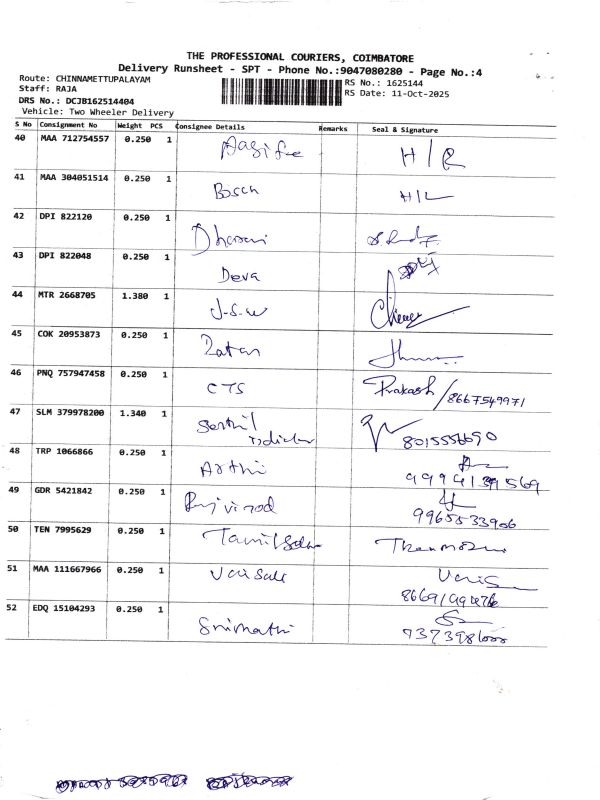 THE PROFESSIONAL COURIERS, COIMBATORE
Delivery Runsheet - SPT - Phone No.:9047080280 - Page No.:4
Route: CHINNAMETTUPALAYAM
RS No.: 1625144
Staff: RAJA
RS Date: 11-Oct-2025
DRS No.: DCJB162514404
Vehicle: Two Wheeler Delivery
S No Consignment No Weight PCS Consignee Details Remarks Seal & Signature
40 MAA 712754557 0.250 1 H/R
41 MAA 304051514 0.250 1 Bosch H/L
42 DPI 822120 0.250 1 Dharani
43 DPI 822048 0.250 1 Deva
44 MTR 2668705 1.380 1 J-S-W
45 COK 20953873 0.250 1 Ratan
46 PNQ 757947458 0.250 1 CTS Prakash/8667549971
47 SLM 379978200 1.340 1 Senthil 8015556690
48 TRP 1066866 0.250 1 Arthi
49 GDR 5421842 0.250 1 9965533906
50 TEN 7995629 0.250 1
51 MAA 111667966 0.250 1
52 EDQ 15104293 0.250 1 Srimathi